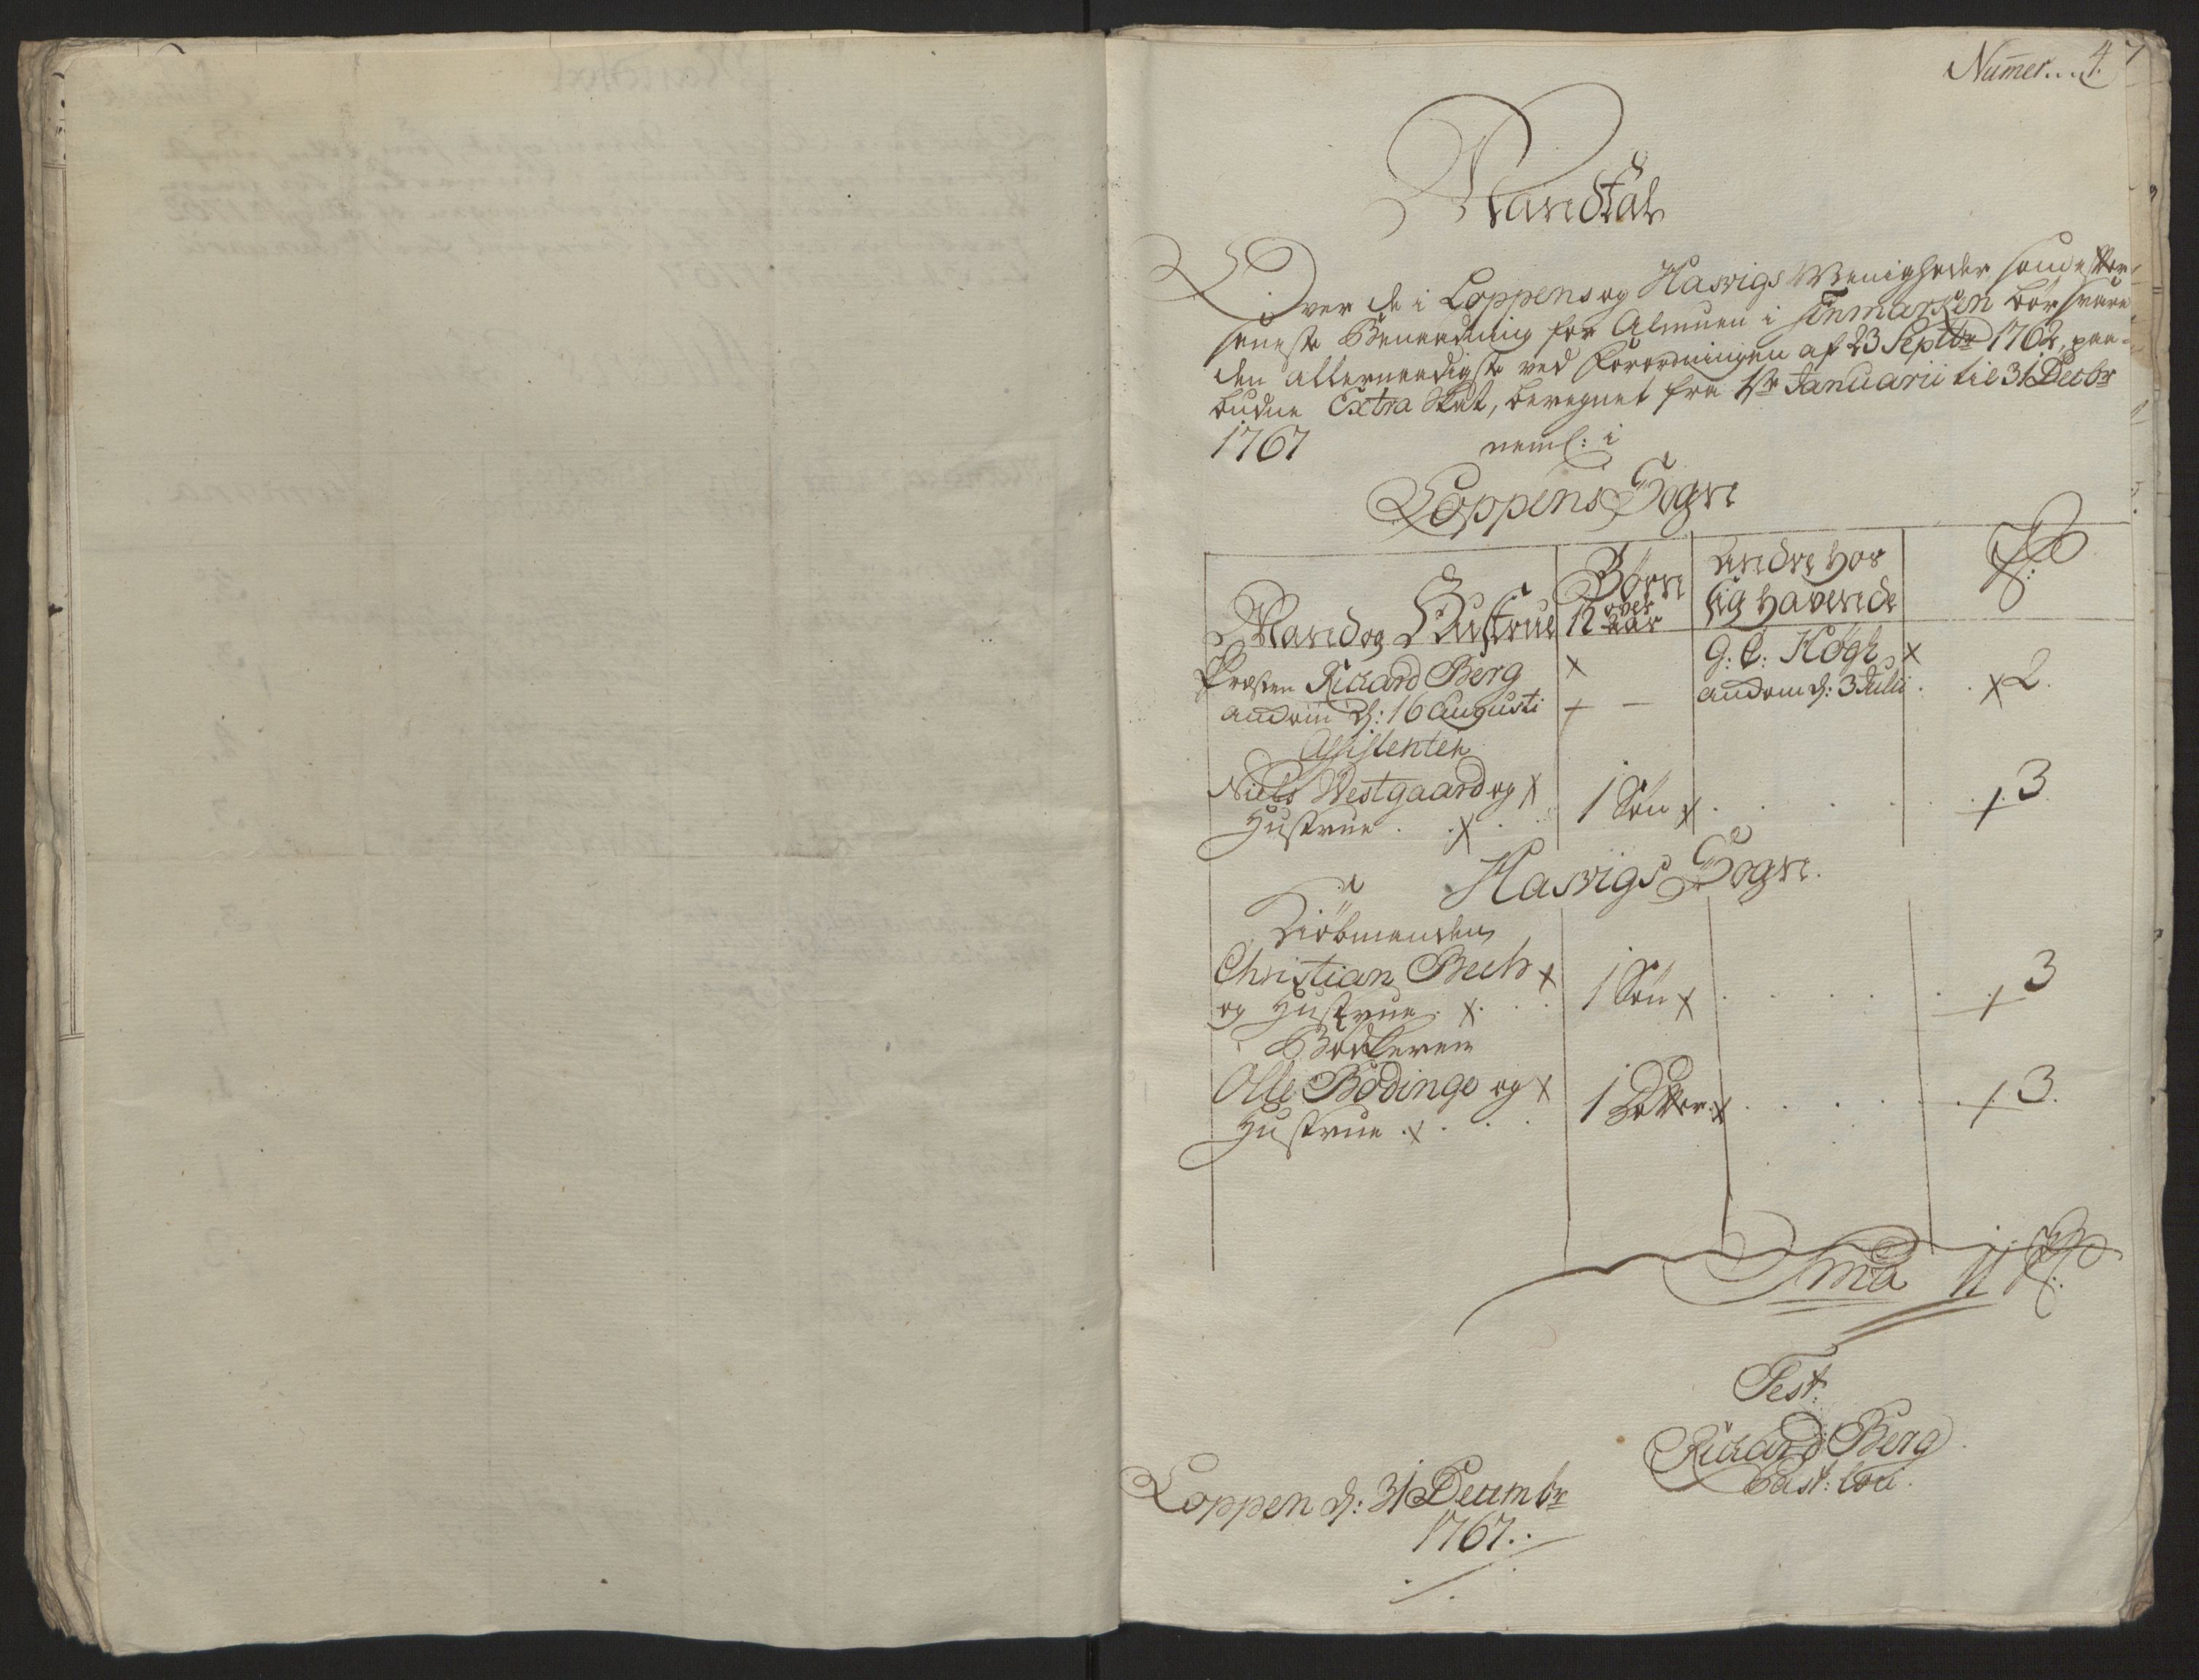 Num̄er....4. 7
Mandtal
Over de i Loppens og Hasvigs Menigheder, som efter
seneste Benaadning for Almuen i Finmarken bør svare
den allernaadigste ved Forordningen af 23 Septbr 1762, paa-
budne Extra Skat, beregnet fra 1ste Januarii til 31 Decbr
1767 neml: i
Loppens Sogn
Mand og Hustrue Børn over 12 aar Andre hos sig havende
Præsten Rickard Berg x G: C: Høgh x
ankom d: 16 Augusti + — ankom d: 3 Julii . . x 2.
Assistenten
Niels Westgaard og x
Hustrue . . x . . 1 Søn x . . . . . + 3.
Hasvigs Sogn.
Kiöbmanden
Christian Buch x
og Hustrue . x . . . 1 Søn x . . . . . + 3
Bödkeren
Olle Bödinge og x
Hustrue . x . . . 1 Dotter . x . . . . . + 3.
Sm̄a 11
Test:
Rickard Berg
Past: loci.
Loppen d: 31 Decembr
1767.